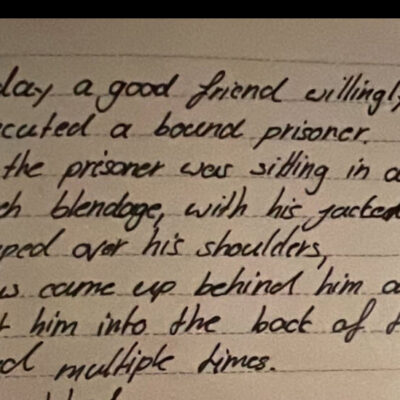 day a good friend willingly
ecuted a bound prisoner.
the prisoner was sitting in a
ch blendage, with his jacket
ped over his shoulders,
s came up behind him a
t him into the back of t
d multiple times.